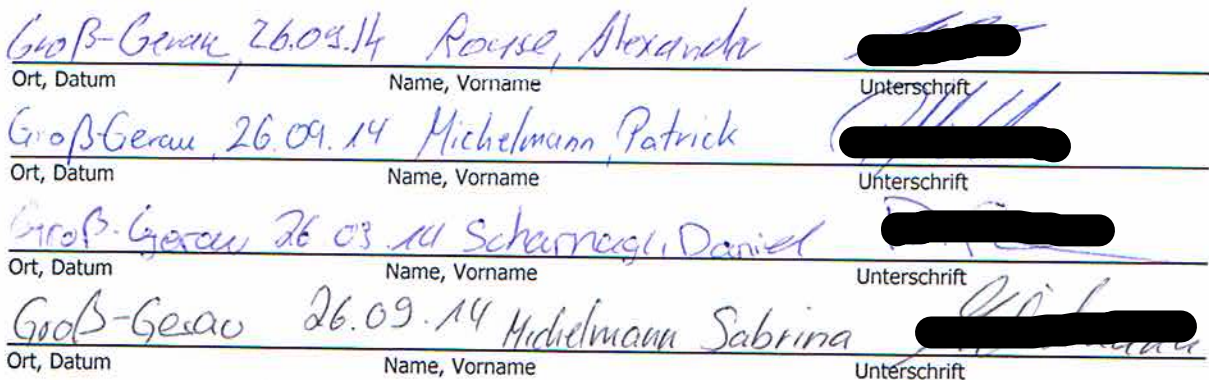 Groß-Gerau, 26.09.14 Rouse, Alexander
Ort, Datum Name, Vorname Unterschrift
Groß-Gerau, 26.09.14 Michelmann, Patrick
Ort, Datum Name, Vorname Unterschrift
Groß-Gerau 26 03 14 Scharnagl, Daniel
Ort, Datum Name, Vorname Unterschrift
Groß-Gerau 26.09.14 Michelmann Sabrina
Ort, Datum Name, Vorname Unterschrift